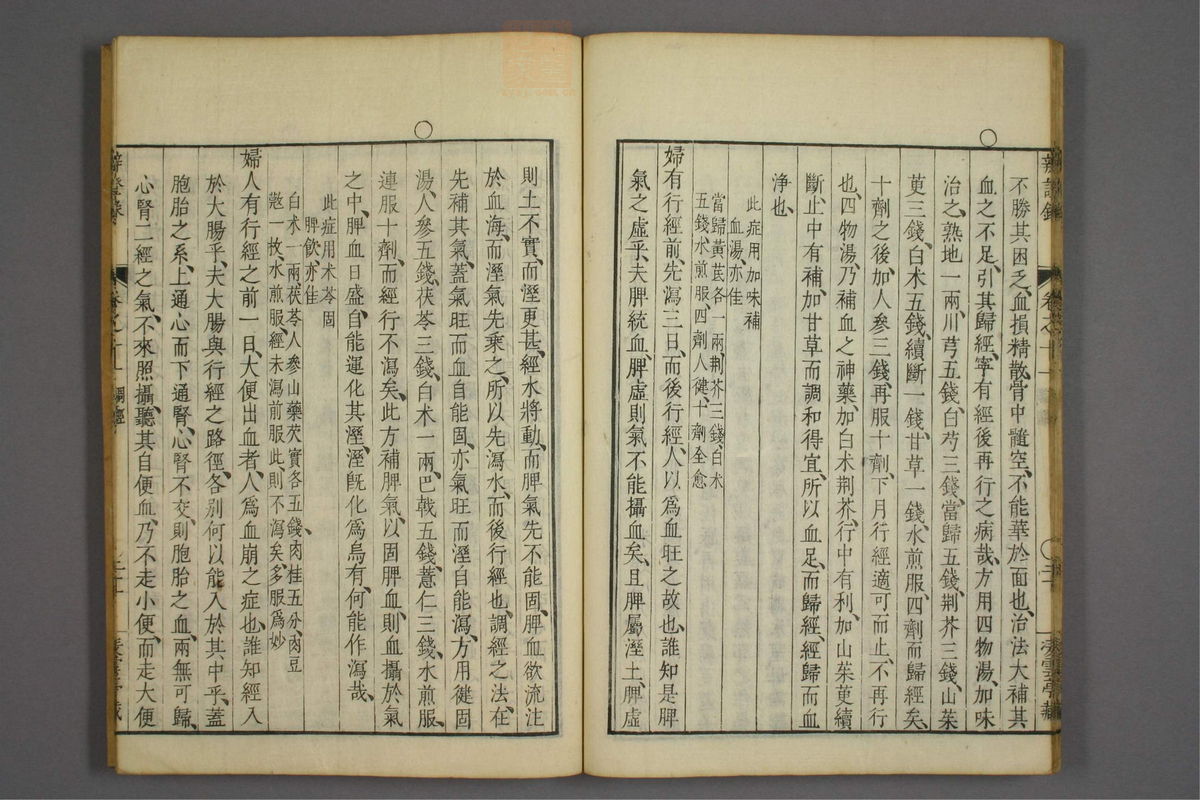 不勝其困乏、血損精散、骨中髓空、不能華於面也、治法大補其
血之不足、引其歸經、寧有經後再行之病哉、方用四物湯、加味
治之、熟地一兩、川芎五錢、白芍三錢、當歸五錢、荆芥三錢、山茱
萸三錢、白朮五錢、續斷一錢、甘草一錢、水煎服、四劑而歸經矣、
十劑之後、加人參三錢、再服十劑、下月行經、適可而止、不再行
也、四物湯、乃補血之神藥、加白朮荆芥、行中有利、加山茱萸續
斷、止中有補、加甘草而調和得宜、所以血足、而歸經、經歸而血
淨也、
此症用加味補
血湯、亦佳
當歸黃芪各一兩、荆芥三錢、白朮
五錢、水煎服、四劑人健、十劑全愈
婦有行經前、先瀉三日、而後行經、人以爲血旺之故也、誰知是脾
氣之虛乎、夫脾統血、脾虛則氣不能攝血矣、且脾屬溼土、脾虛
則土不實、而溼更甚、經水將動、而脾氣先不能固、脾血欲流注
於血海、而溼氣先乘之、所以先瀉水、而後行經也、調經之法、在
先補其氣、蓋氣旺而血自能固、亦氣旺而溼自能瀉、方用健固
湯、人參五錢、茯苓三錢、白朮一兩、巴戟五錢、薏仁三錢、水煎服、
連服十劑、而經行不瀉矣、此方補脾氣、以固脾血、則血攝於氣
之中、脾血日盛、自能運化其溼、溼既化爲烏有、何能作瀉哉、
此症用朮苓固
脾飲、亦佳
白朮一兩、茯苓人參山藥芡實各五錢、肉桂五分、肉豆
蔻一枚、水煎服、經未瀉前服此、則不瀉矣、多服爲妙
婦人有行經之前一日、大便出血者、人爲血崩之症也、誰知經入
於大腸乎、夫大腸與行經之路徑、各別何以能入於其中乎、蓋
胞胎之系、上通心而下通腎、心腎不交、則胞胎之血、兩無可歸、
心腎二經之氣、不來照攝、聽其自便血、乃不走小便、而走大便